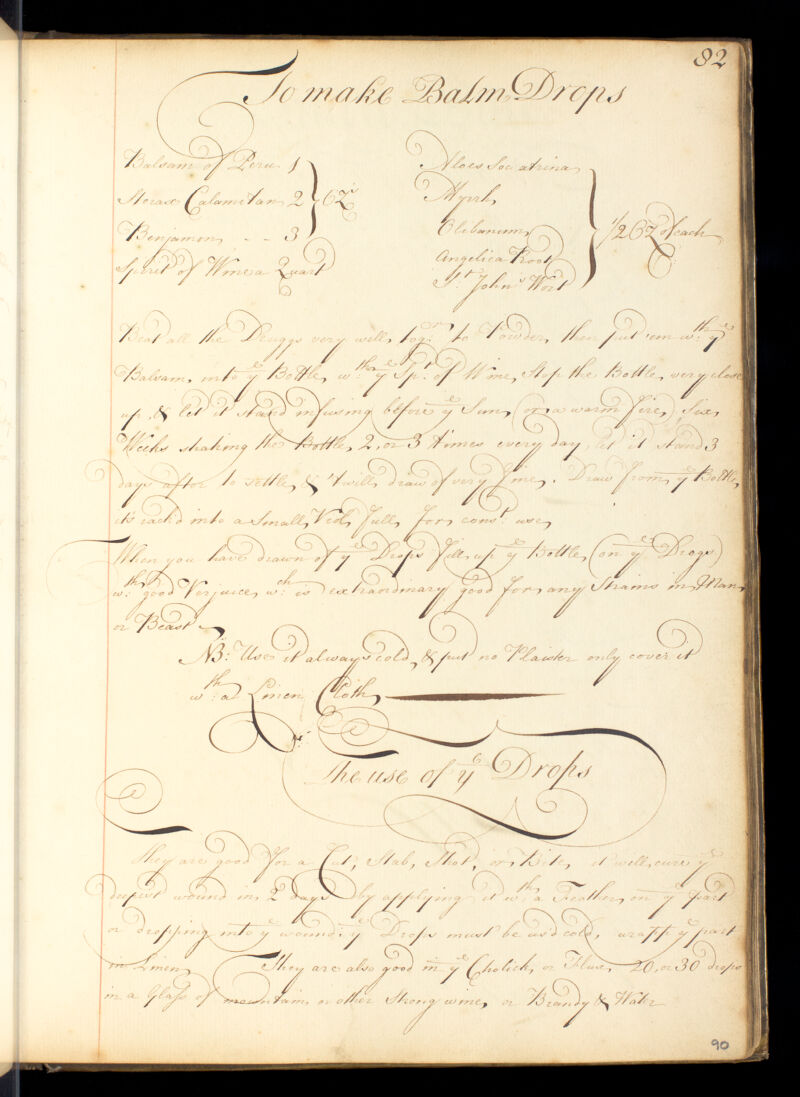 82
To make Balm Drops
Balsam of Peru 1
Storax Calamitan 2 } oz.
Benjamon - - 3
Spirit of Wine a Quart
Aloes Socatrina
Myrrh
Olibanum } 1/2 oz of each
Angelica Root
St. John's Wort
Beat all the Druggs very well, togr. to Powder, then put 'em wth. ye
Balsam, into ye Bottle, wth. ye Spt. of Wine, Stop the Bottle, very close
up, & let it stand infusing before ye Sun, (or a warm fire) Six
Weeks shaking the Bottle, 2, or 3 times every day, let it stand 3
days after to settle, & 'twill draw of very fine. Draw from ye Bottle,
its rack'd into a Small Viol full, for const. use
When you have drawn of ye Drops fill up ye Bottle, (on ye Drogs)
wth. good Verjuice, wch. is extraordinary good for any Strains in Man
or Beast
NB: Use it always cold, & put no Plaister only cover it
wth. a Linen Cloth,
The use of ye Drops
They are good for a Cut, Stab, Shot, or Bite, it will cure ye
deepest wound in 2 days by applying it wth. a Feather, on ye part
or dropping into ye wound: ye Drops must be us'd cold, wrapp ye part
in Linen, They are also good in ye Cholick, or Flux, 20, or 30 drops
in a Glass of mountain or other Strong wine, or Brandy & Water
90